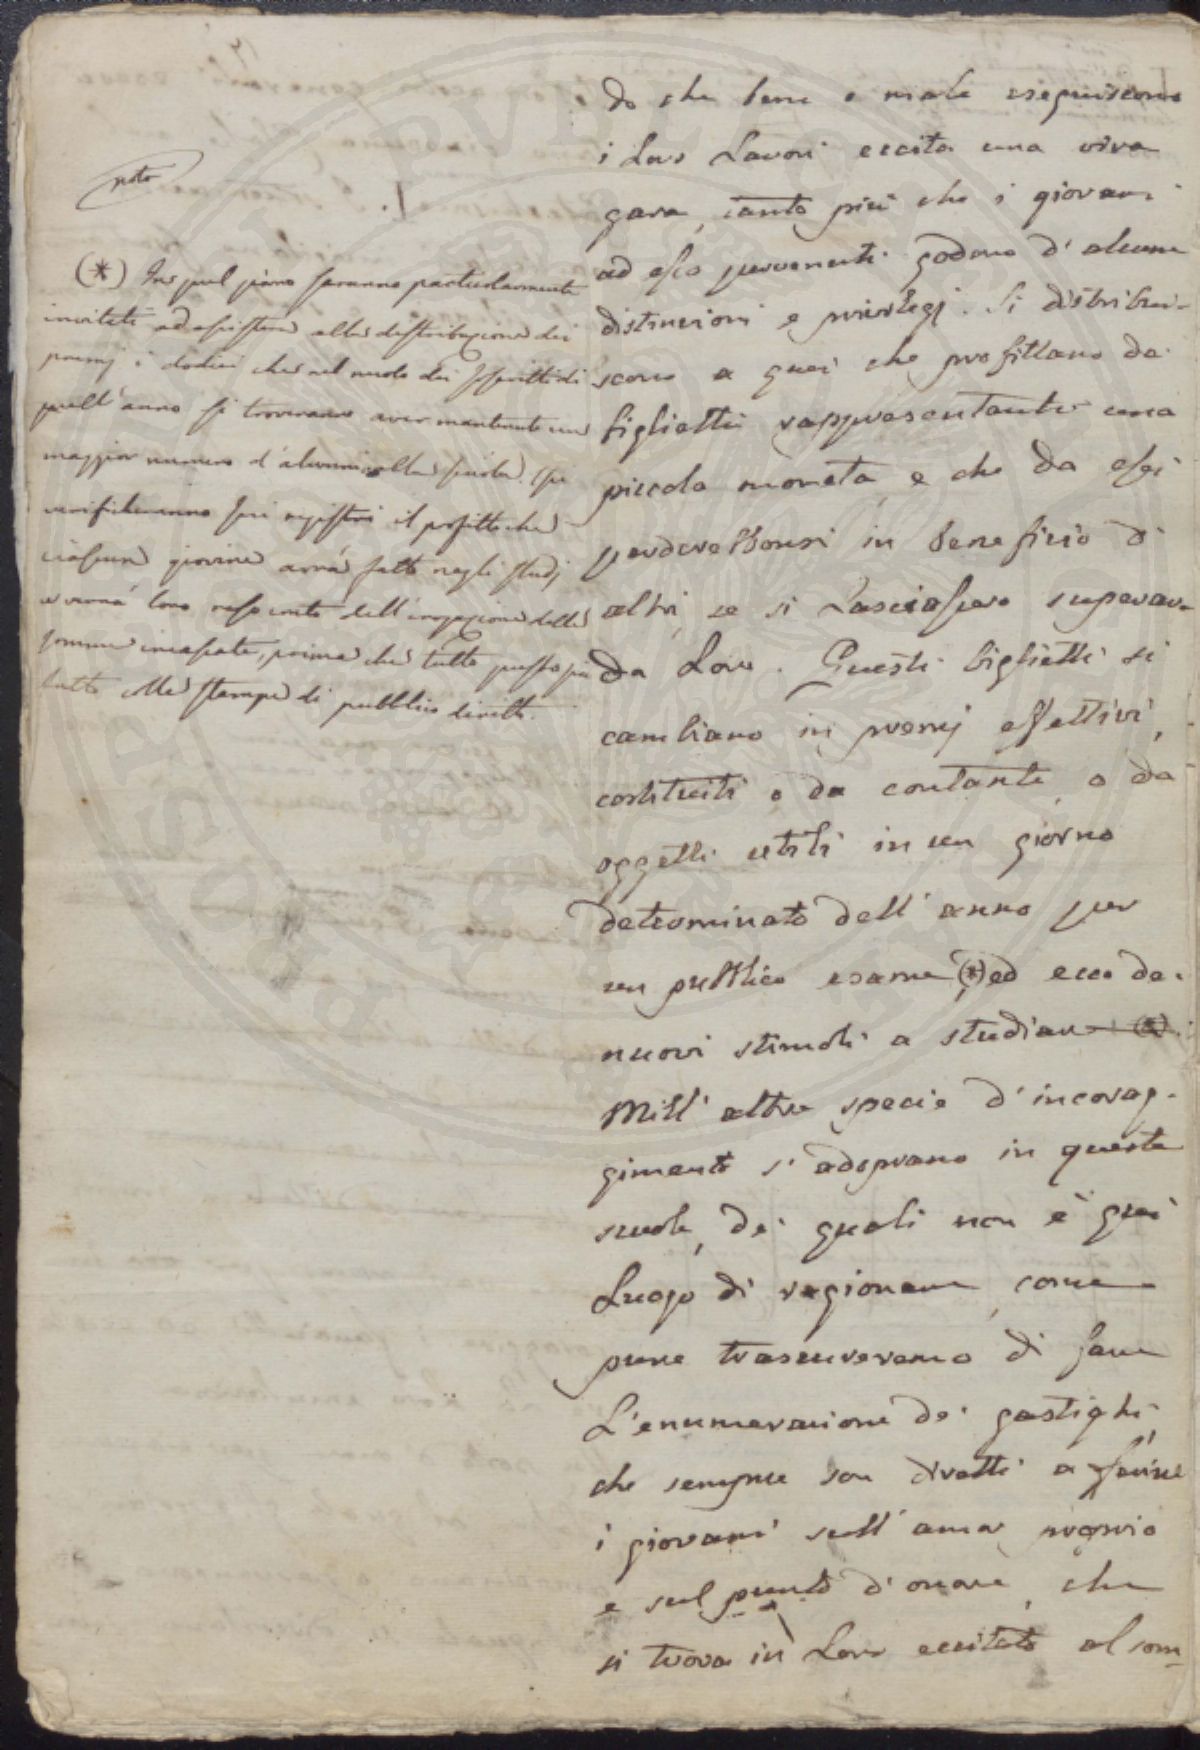 do che bene o male eseguiscono
i loro Lavori eccita una viva
gara, tanto più che i giovani
ad essa pervenuti godono d'alcune
distinzioni e privilegj. Si distribui-
scono a quei che profittano de'
biglietti rappresentanti una
piccola moneta, e che da essi
perderebbonsi in beneficio di
altri, se si Lasciassero superar
da Loro. Questi biglietti si
cambiano in premj effettivi,
costituiti o da contante, o da
oggetti utili in un giorno
determinato dell'anno per
un pubblico esame (*) ed ecco de'
nuovi stimoli a studiare (*)
Mill' altre specie d'incorag-
gimento s'adoprano in queste
scuole, dei quali non è quì
Luogo di ragionare, come
pure trascureremo di fare
L'enumerazione de' gastighi,
che sempre son diretti a ferire
i giovani sull'amor proprio
e sul punto d'onore, che
si trova in Loro eccitato al som-
nota
(*) In quel giorno saranno particolarmente
invitati ad assistere alla distribuzione dei
premj i dodici che nel ruolo dei soscritti di
quell'anno si troveranno aver mantenuto un
maggior numero d'alunni alla scuola. Essi
verificheranno sui registri il profitto che
ciascun giovine avrà fatto negli studj
e verrà loro reso conto dell'erogazione delle
somme incassate, prima che tutto questo sia
fatto colla stampa di pubblico diritto.